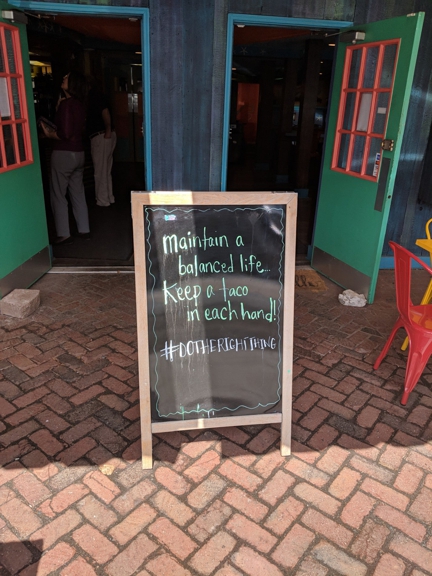 maintain a
balanced life...
Keep a taco
in each hand!
#DOTHERIGHTTHING